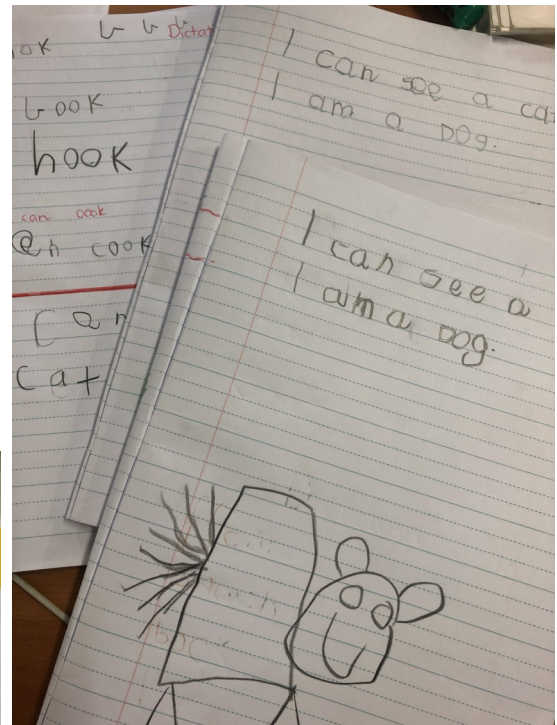 Dictat
ook
book
hook
can ook
an cook
can
cat
I can see a cat
I am a Dog.
I can see a
I am a Dog.